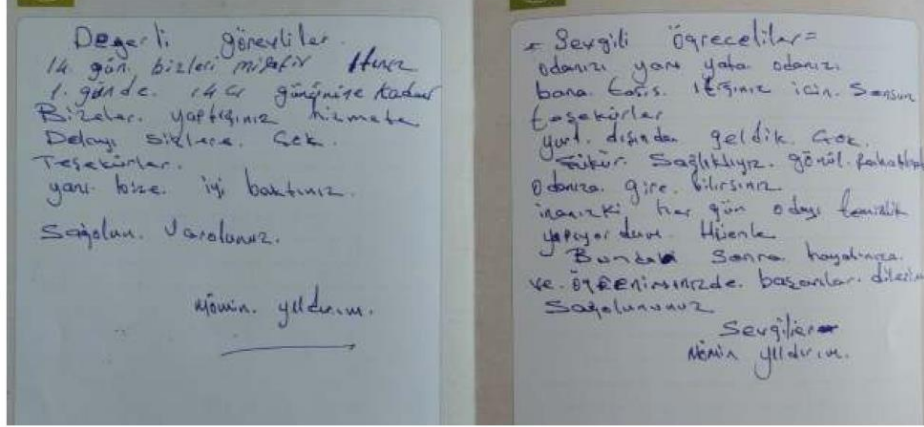 Degerli görevliler
14 gün bizleri misafir
1. günde. 14 cü gününüze kadar
Bizelar. yaptıgınız hizmete
Dolayı sizlere. Çok.
Teşekürler.
yanı bize. iyi baktınız.
Sağolun. Varolunuz.
Mömin. yıldırım.
= Sevgili ögreceliler=
odanızı yanı yata odanızı
bana tasis. için. Sonsuz
teşekürler
yurt. dışından geldik. Çok.
Şükür. Sağlıklıyız. gönül.
Odanıza. gire. bilirsiniz
inanızki, her gün odayı temizlik
yapıyordum.
Bundan Sonra hayatınıza.
ve. ögreniminizde. başarılar.
Sağolununuz
Sevgiler
Mömin yıldırım.